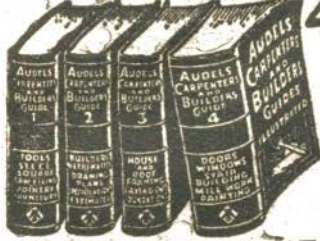 AUDELS
CARPENTERS
AND
BUILDERS
GUIDE
1
TOOLS
STEEL
SQUARE
SAW FILING
JOINERY
FURNITURE
AUDELS
CARPENTERS
AND
BUILDERS
GUIDE
2
BUILDERS
MATHEMATICS
DRAWING
PLANS
SPECIFICATIONS
ESTIMATES
AUDELS
CARPENTERS
AND
BUILDERS
GUIDE
3
HOUSE
AND
ROOF
FRAMING
LAYING OUT
AUDELS
CARPENTERS
AND
BUILDERS
GUIDE
4
DOORS
WINDOWS
STAIR
BUILDING
MILL WORK
PAINTING
AUDELS
CARPENTERS
AND
BUILDERS
GUIDES
ILLUSTRATED